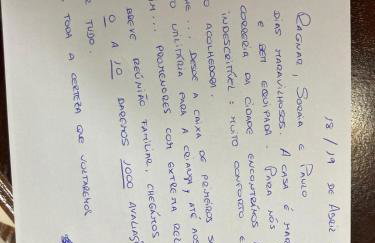 18/19 DE ABRIL
RAGNAR, SORAIA E PAULO
DIAS MARAVILHOSOS. A CASA É MAR
E BEM EQUIPADA. PARA NÓS
CORRERIA DA CIDADE ENCONTRÁMOS
INDESCRITÍVEL: MUITO CONFORTO E
O ACOLHEDORA.
E... DESDE A CAIXA DE PRIMEIROS S
O UTILITÁRIA PARA A CRIANÇA, ATÉ AOS
M... PROMENORES COM EXTREMA REL
BREVE REUNIÃO FAMILIAR, CHEGÁMOS
0 A 10 DAREMOS 1000 AVALIAÇ
R TUDO.
TODA A CERTEZA QUE VOLTAREMOS